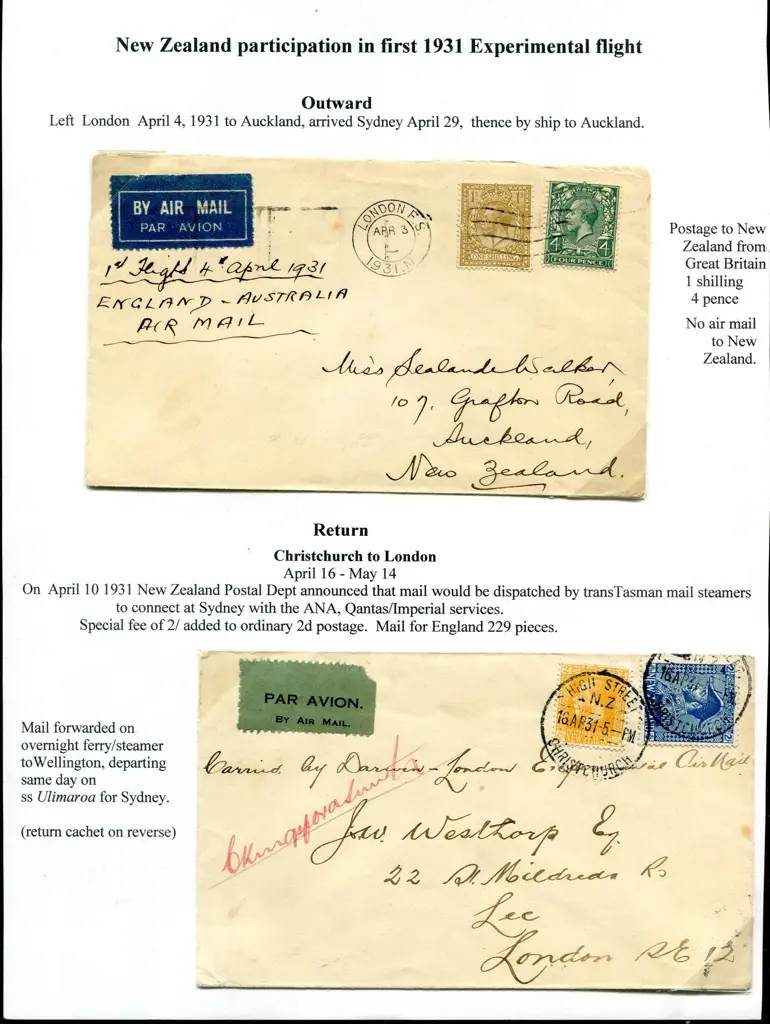 New Zealand participation in first 1931 Experimental flight
Outward
Left London April 4, 1931 to Auckland, arrived Sydney April 29, thence by ship to Auckland.
BY AIR MAIL
PAR AVION
LONDON F.S.
APR 3
1931
1/- 1/-
ONE SHILLING
4 4
FOUR PENCE
1st Flight 4th April 1931
ENGLAND - AUSTRALIA
AIR MAIL
Miss Sealande Walker,
107, Grafton Road,
Auckland,
New Zealand.
Postage to New
Zealand from
Great Britain
1 shilling
4 pence
No air mail
to New
Zealand.
Return
Christchurch to London
April 16 - May 14
On April 10 1931 New Zealand Postal Dept announced that mail would be dispatched by transTasman mail steamers
to connect at Sydney with the ANA, Qantas/Imperial services.
Special fee of 2/ added to ordinary 2d postage. Mail for England 229 pieces.
PAR AVION.
BY AIR MAIL.
HIGH STREET
N.Z
16AP31-5-PM
CHRISTCHURCH
16AP31
CHRISTCHURCH
Mail forwarded on
overnight ferry/steamer
toWellington, departing
same day on
ss Ulimaroa for Sydney.
(return cachet on reverse)
Carried by Darwin-London Air Mail
J.W. Westhorp Esq.
22 St. Mildreds Rd
Lee
London SE 12